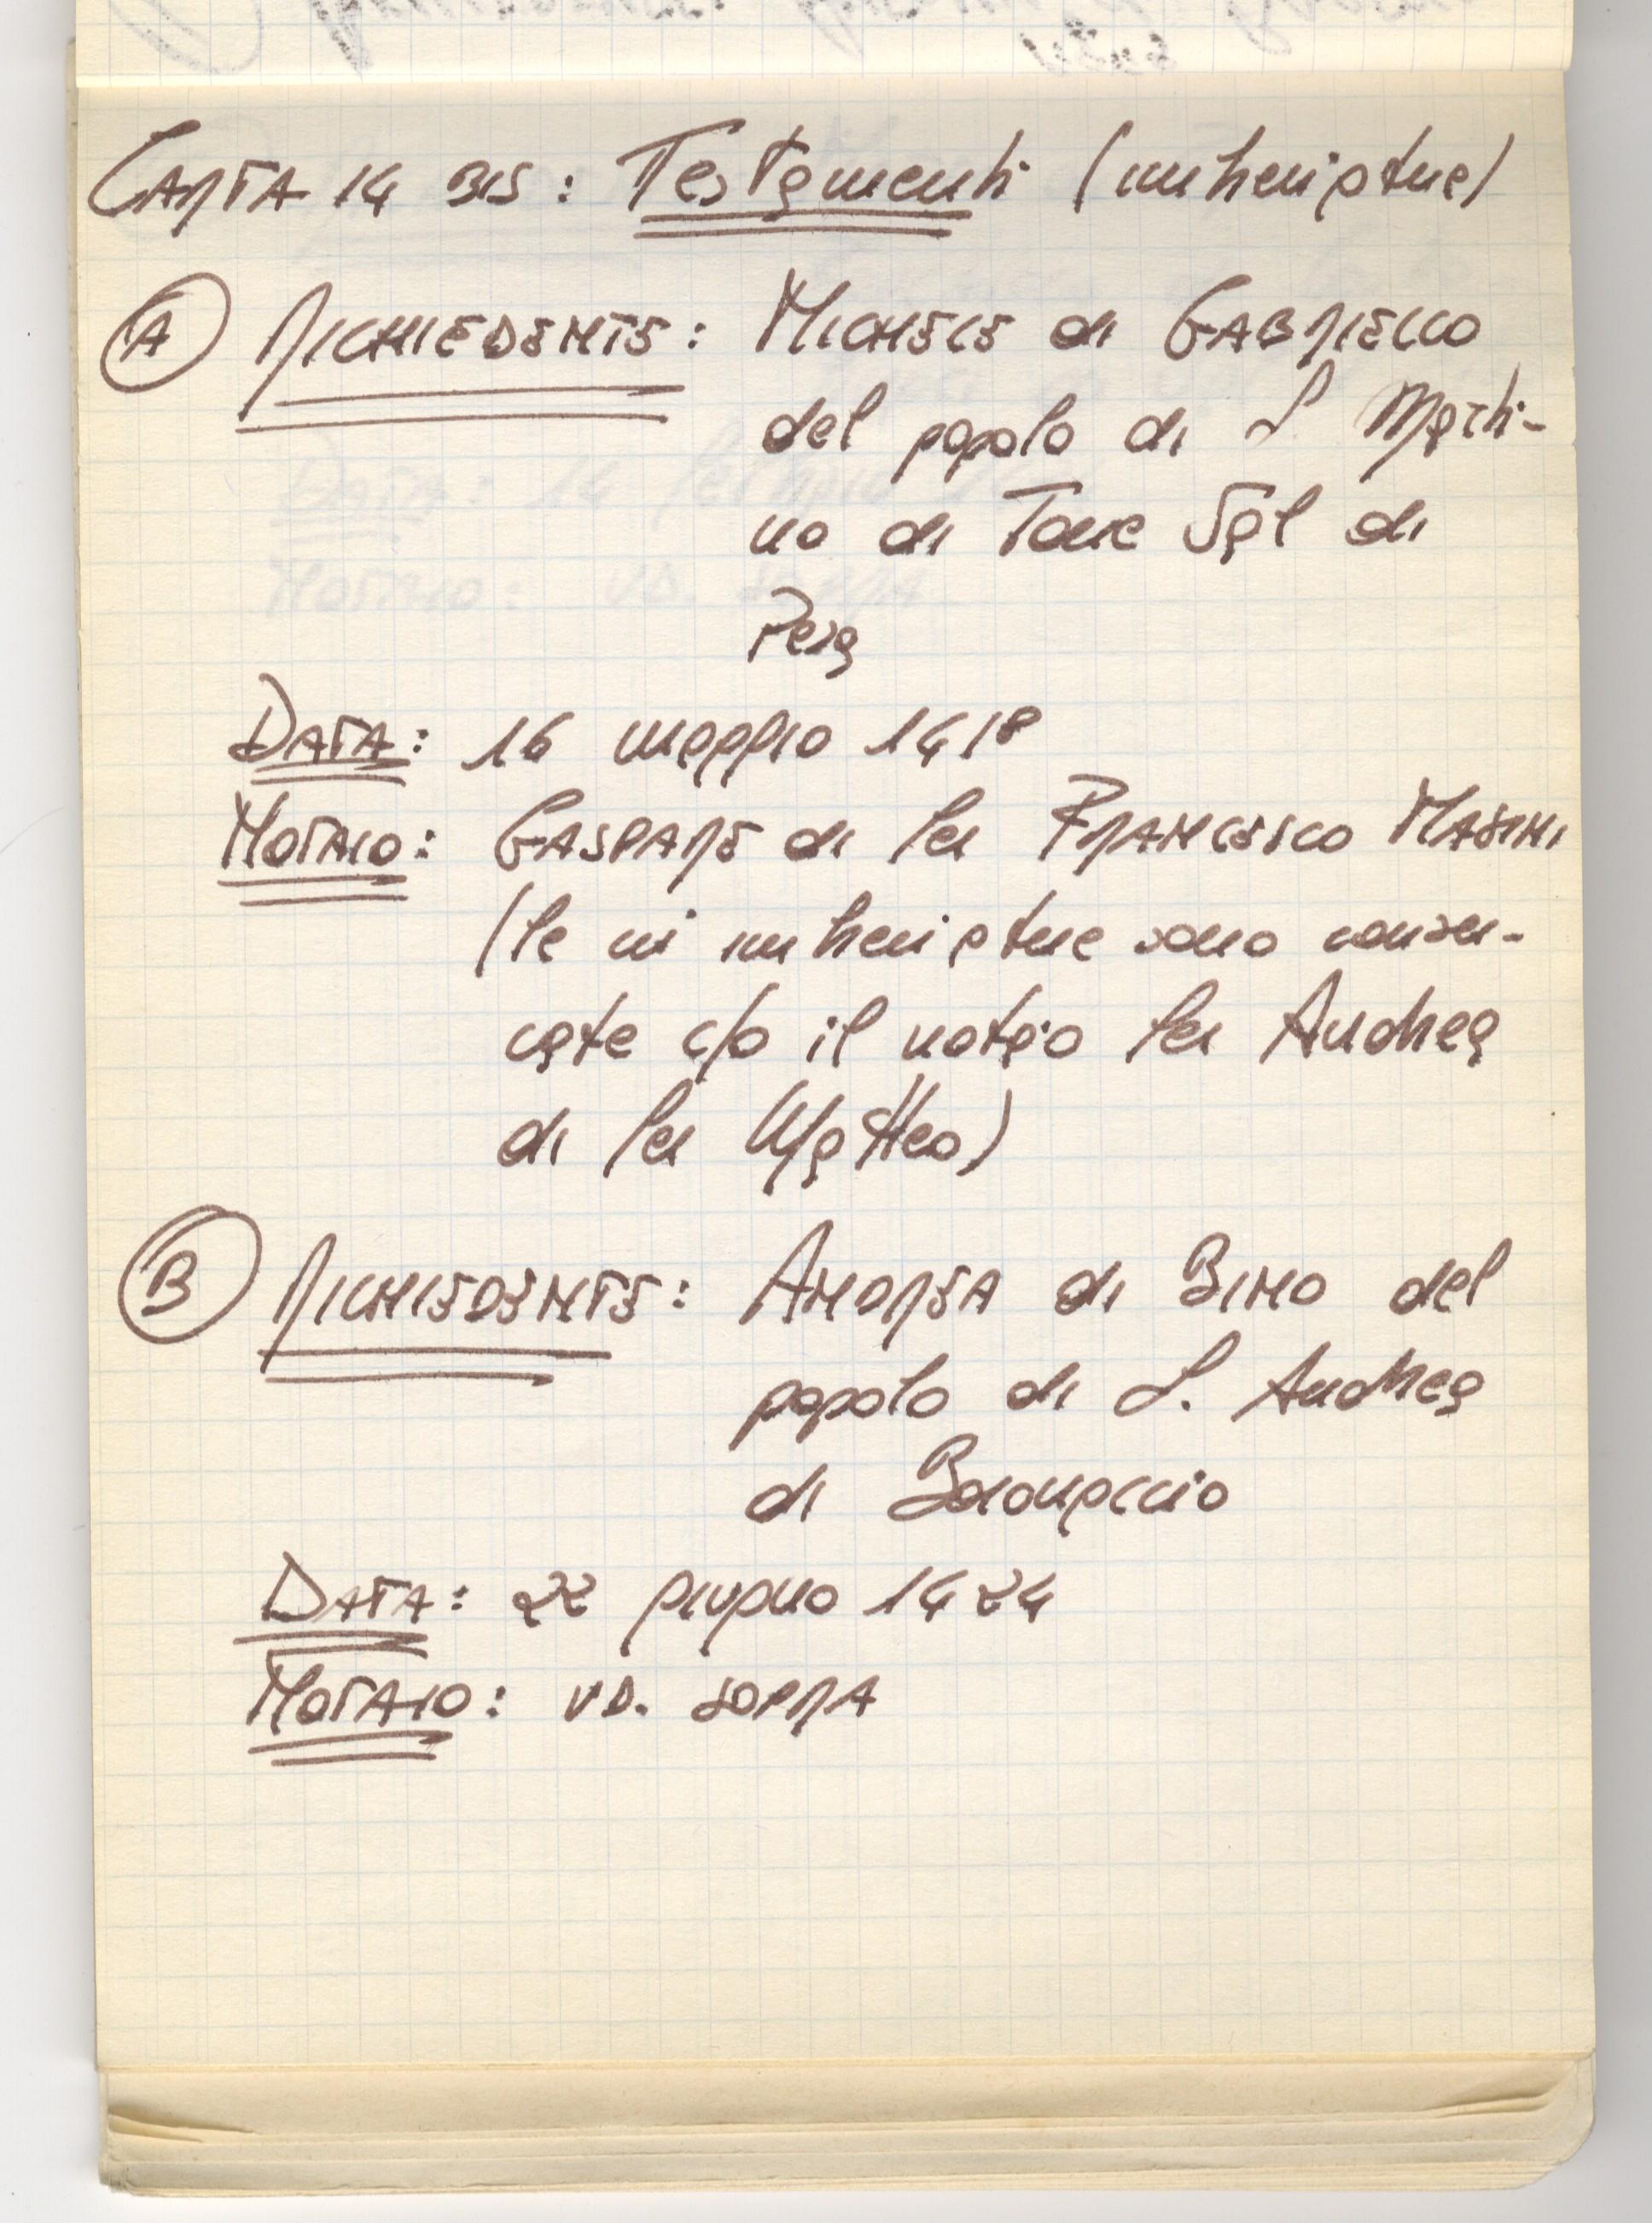 CARTA 14 BIS: Testamenti (imbreviature)
A RICHIEDENTE: MICHELE di GABRIELLO
del popolo di S Marti-
no di Torre Val di
Pesa
DATA: 16 maggio 1418
NOTAIO: GASPARE di Ser FRANCESCO MASINI
(le cui imbreviature sono conser-
vate c/o il notaio Ser Andrea
di Ser Matteo)
B RICHIEDENTE: ANDREA di BINO del
popolo di S. Andrea
di Botinaccio
DATA: 22 giugno 1424
NOTAIO: VD. SOPRA